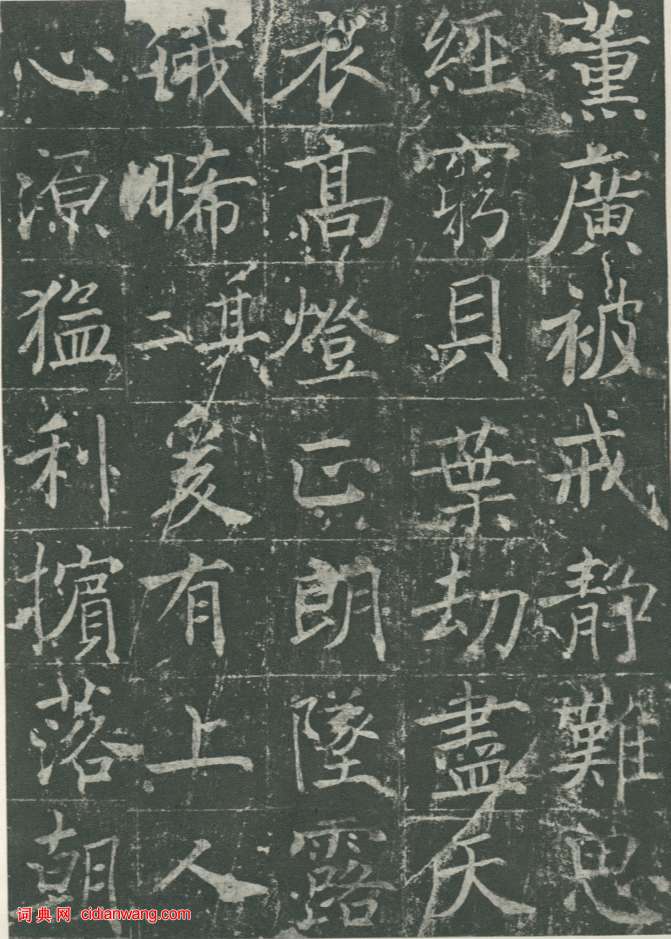 薰廣被戒静難思
經窮貝葉劫盡天
衣高燈正朗墜露
俄晞其二爰有上人
心源猛利擯落朝
词典网 cidianwang.com